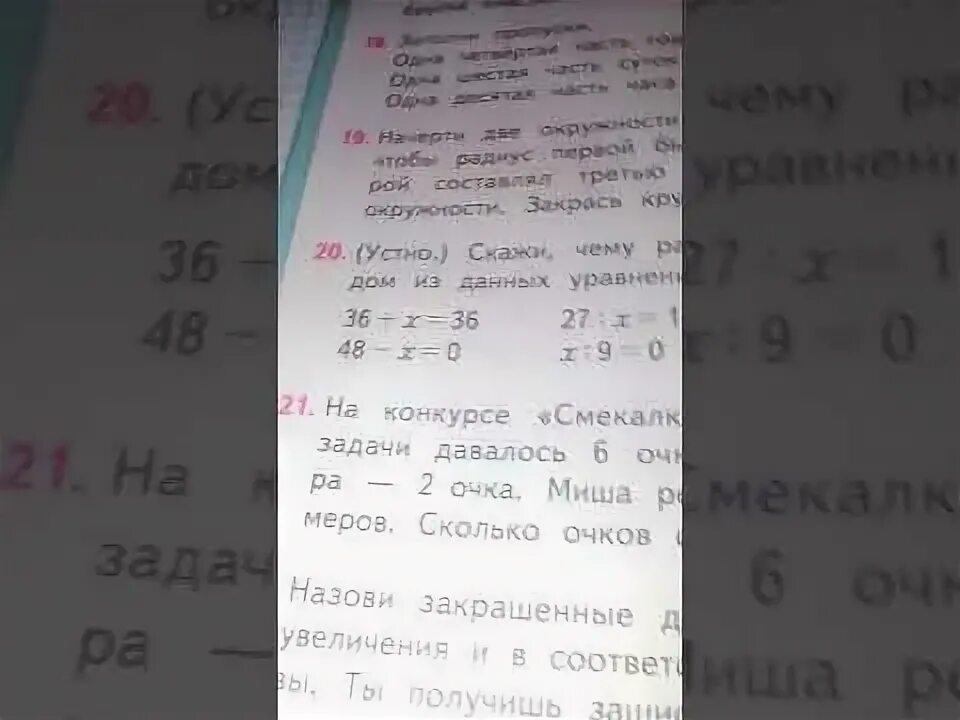 18. пропуски.
Одна четвёртая часть
Одна шестая часть
Одна десятая часть
19. Начерти две окружности
чтобы радиус первой
рой составлял третью
окружности. Закрась кру
20. (Устно.) Скажи, чему ра
дом из данных уравнени
36 − x = 36 27 : x = 1
48 − x = 0 x : 9 = 0
21. На конкурсе «Смекалк
задачи давалось 6 очк
ра — 2 очка. Миша ре
меров. Сколько очков
Назови закрашенные д
увеличения и в соответ
вы. Ты получишь зашиф